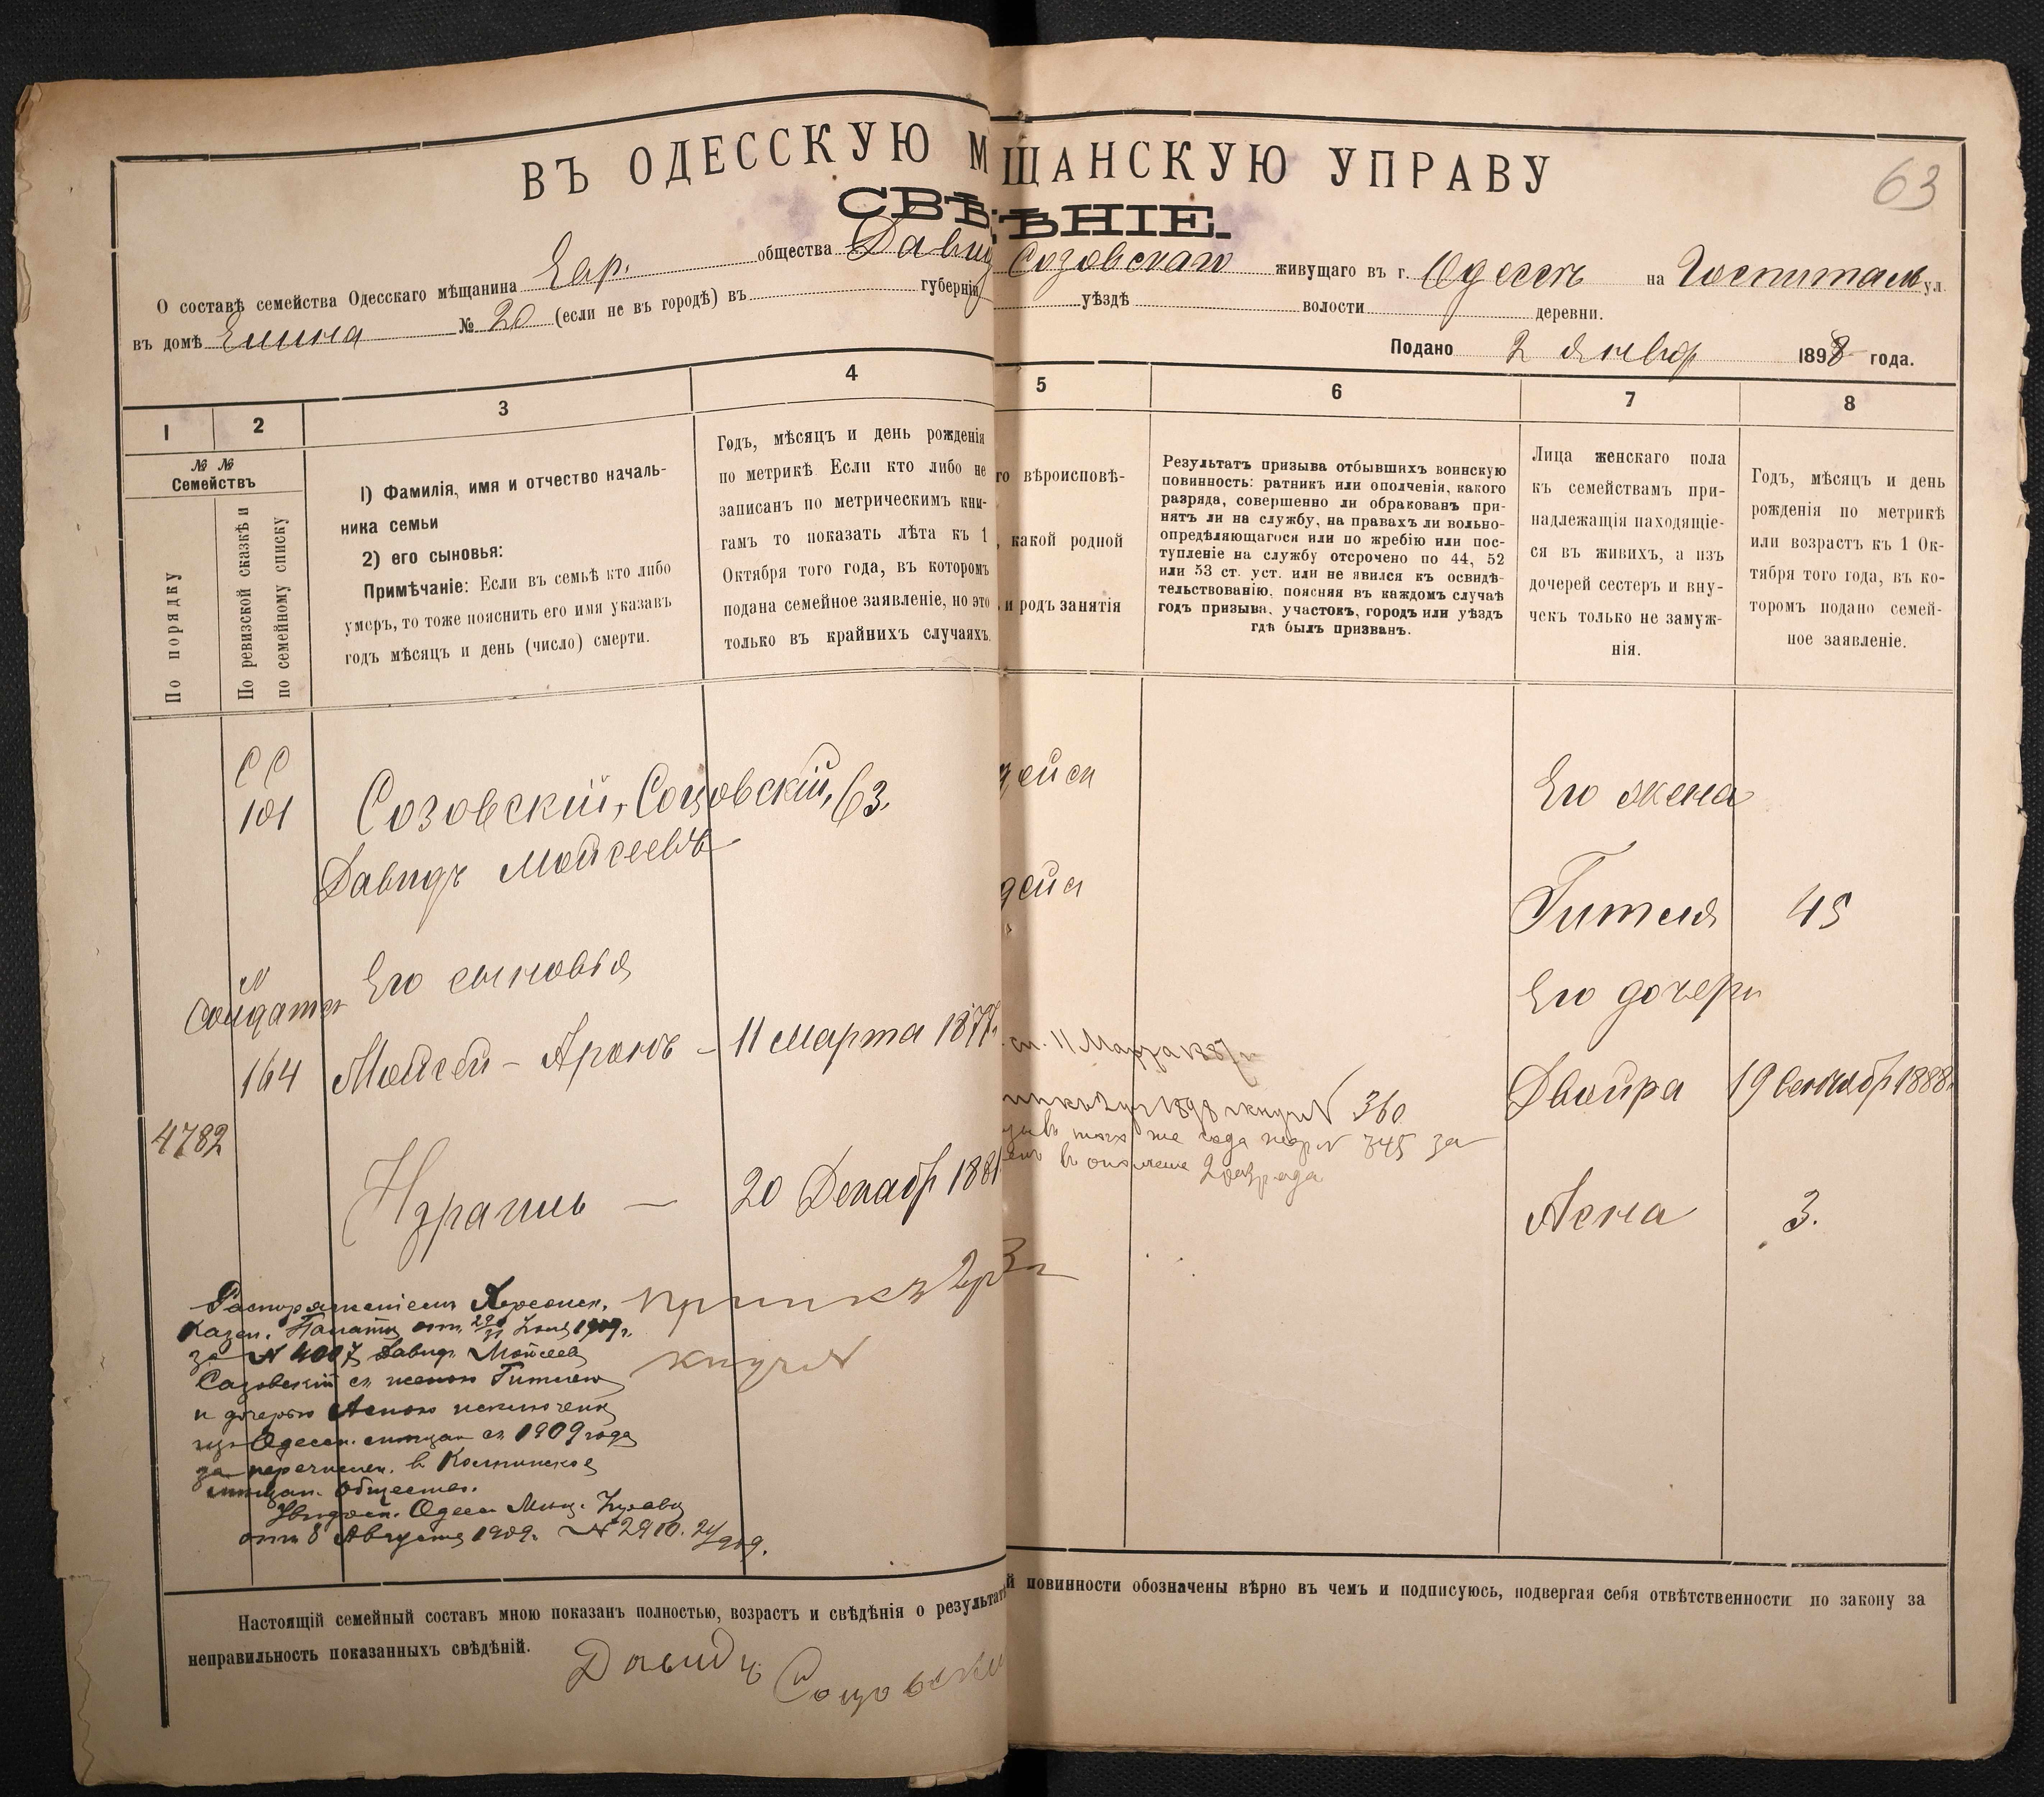 ВЪ ОДЕССКУЮ М ЩАНСКУЮ УПРАВУ
63
СВѢ ѢНІЕ.
О составѣ семейства Одесскаго мѣщанина Евр. общества Давид Созовскаго живущаго въ г. Одессѣ на Госпитальн ул.
въ домѣ № 20 (если не въ городѣ) въ губерніи уѣздѣ волости деревни.
Подано 2 Январ 1898 года.
1 2 3 4 5 6 7 8
№ №
Семействъ
По порядку
По ревизской сказкѣ и
по семейному списку
1) Фамилія, имя и отчество началь-
ника семьи
2) его сыновья:
Примѣчаніе: Если въ семьѣ кто либо
умеръ, то тоже пояснить его имя указавъ
годъ мѣсяцъ и день (число) смерти.
Годъ, мѣсяцъ и день рожденія
по метрикѣ Если кто либо не
записанъ по метрическимъ кни-
гамъ то показать лѣта къ 1
Октября того года, въ которомъ
подана семейное заявленіе, но это
только въ крайнихъ случаяхъ.
го вѣроисповѣ-
, какой родной
и родъ занятія
Результатъ призыва отбывшихъ воинскую
повинность: ратникъ или ополченія, какого
разряда, совершенно ли обракованъ при-
нятъ ли на службу, на правахъ ли вольно-
опредѣляющагося или по жребію или пос-
тупленіе на службу отсрочено по 44, 52
или 53 ст. уст. или не явился къ освидѣ-
тельствованію, поясняя въ каждомъ случаѣ
годъ призыва, участокъ, городъ или уѣздъ
гдѣ былъ призванъ.
Лица женскаго пола
къ семействамъ при-
надлежащія находящіе-
ся въ живихъ, а изъ
дочерей сестеръ и вну-
чекъ только не замуж-
нія.
Годъ, мѣсяцъ и день
рожденія по метрикѣ
или возрастъ къ 1 Ок-
тября того года, въ ко-
торомъ подано семей-
ное заявленіе.
СС
101 Созовскій, Соцовскій, 63. Его жена
Давидъ Мойсеевъ Гителя 45
Его сыновья Его дочери
164 Мойсей-Аронъ - 11 Марта 1877 сп. 11 Марта 1887 Двойра 19 Сентябр 1888
№ 360
того же года № 345 за
4782
в ополчение 2 разряда
Израиль — 20 Декабр 1881 Асна 3.
Распоряжением Херсонск.
Казен. Палаты от 1909 г.
за № 4007 Давид Мойсеев
Сазовский с женою Гителею
и дочерью Асною исключены
из Одесск. мещан с 1909 года
за перечислен. в
мещан. общество.
Одесс. Мещ. Управы
от 8 Августа 1909 г. № 2910.
Настоящій семейный составъ мною показанъ полностью, возрастъ и свѣдѣнія о результат й повинности обозначены вѣрно въ чемъ и подписуюсь, подвергая себя отвѣтственности по закону за
неправильность показанныхъ свѣдѣній.
Давидъ Соцовски